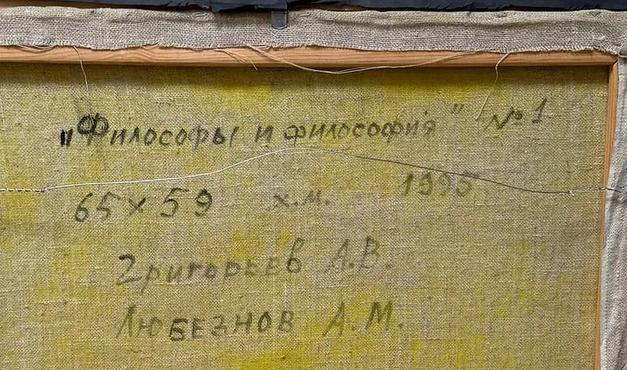 „Философы и философия" № 1
65 x 59 х.м. 1995
Григорьев А.В.
Любезнов А.М.